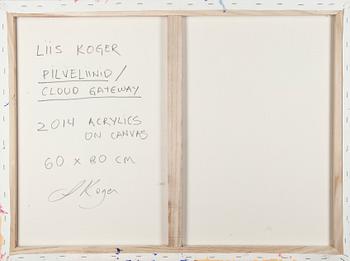 LIIS KOGER
PILVELINNID /
CLOUD GATEWAY
2014 ACRYLICS
ON CANVAS
60 x 80 cm
LKoger